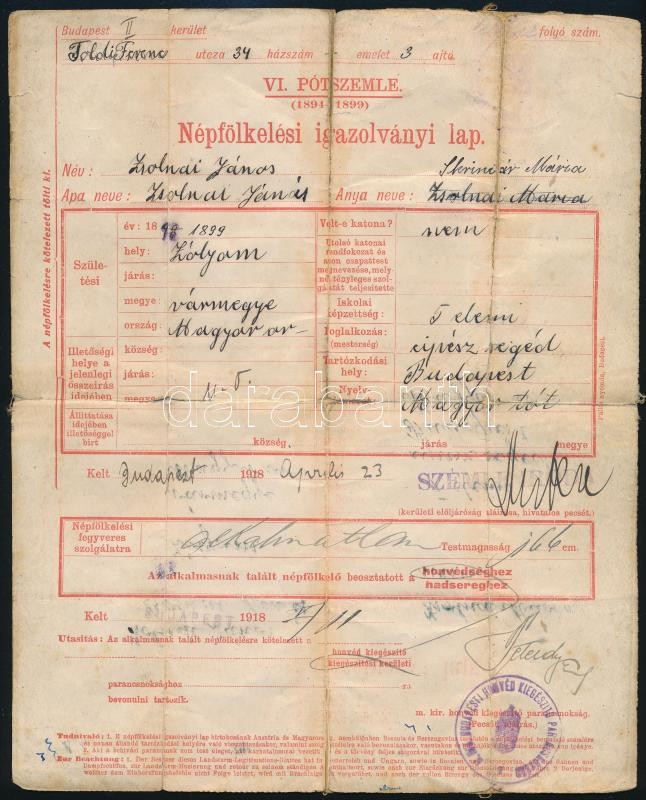 Budapest II kerület folyó szám.
Toldi Ferenc utcza 34 házszám emelet 3 ajtó
VI. PÓTSZEMLE.
(1894-1899)
Népfölkelési igazolványi lap.
A népfölkelésre kötelezett tölti ki.
Név: Zsolnai János
Skrinár Mária
Apa neve: Zsolnai János Anya neve: Zsolnai Mária
Születési
év: 18 98 1899
hely: Zólyom
járás:
megye: vármegye
ország: Magyaror-
Volt-e katona? nem
Utolsó katonai rendfokozat és azon csapattest megnevezése, melynél tényleges szolgálatát teljesítette
Iskolai képzettség: 5 elemi
Foglalkozás: (mesterség) cipész segéd
Illetőségi helye a jelenlegi összeírás idejében
község:
járás:
megye
Tartózkodási hely: Budapest
Nyelv: Magyar tót
Állíttatása idejében illetőséggel birt
község járás megye
Pallas nyomda, Budapest.
Kelt Budapest 1918 Április 23
(kerületi elöljáróság aláírása, hivatalos pecsét.)
Népfölkelési fegyveres szolgálatra alkalmatlan Testmagasság 166 cm.
Az alkalmasnak talált népfölkelő beosztatott a honvédséghez
hadsereghez
Kelt BUDAPEST 1918 V/11
Utasitás: Az alkalmasnak talált népfölkelésre kötelezett a honvéd kiegészitő
kiegészitési kerületi
parancsnoksághoz r.
bevonulni tartozik.
m. kir. honvéd kiegészitő parancsnokság.
(Pecsét, aláírás.)
Tudnivaló: 1. E népfölkelési igazolványi lap birtokosának Ausztria és Magyarország
Zur Beachtung: 1. Der Besitzer dieses Landsturm-Legitimationsblattes hat in
darabanth